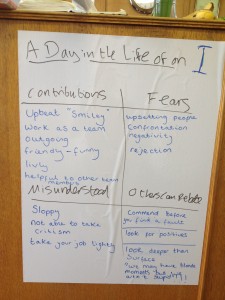 A Day in the Life of an I
Contributions
Upbeat "Smiley"
Work as a team
Outgoing
friendly - funny
livly
helpful to other team
members
Fears
upsetting people
Confrontation
negativity
rejection
Misunderstood
Sloppy
not able to take
critism
take your job lightly
Others can Relate
Commend Before
you find a fault
look for positives
look deeper than
Surface
"we may have blonde
moments but we
aren't stupid"!!!